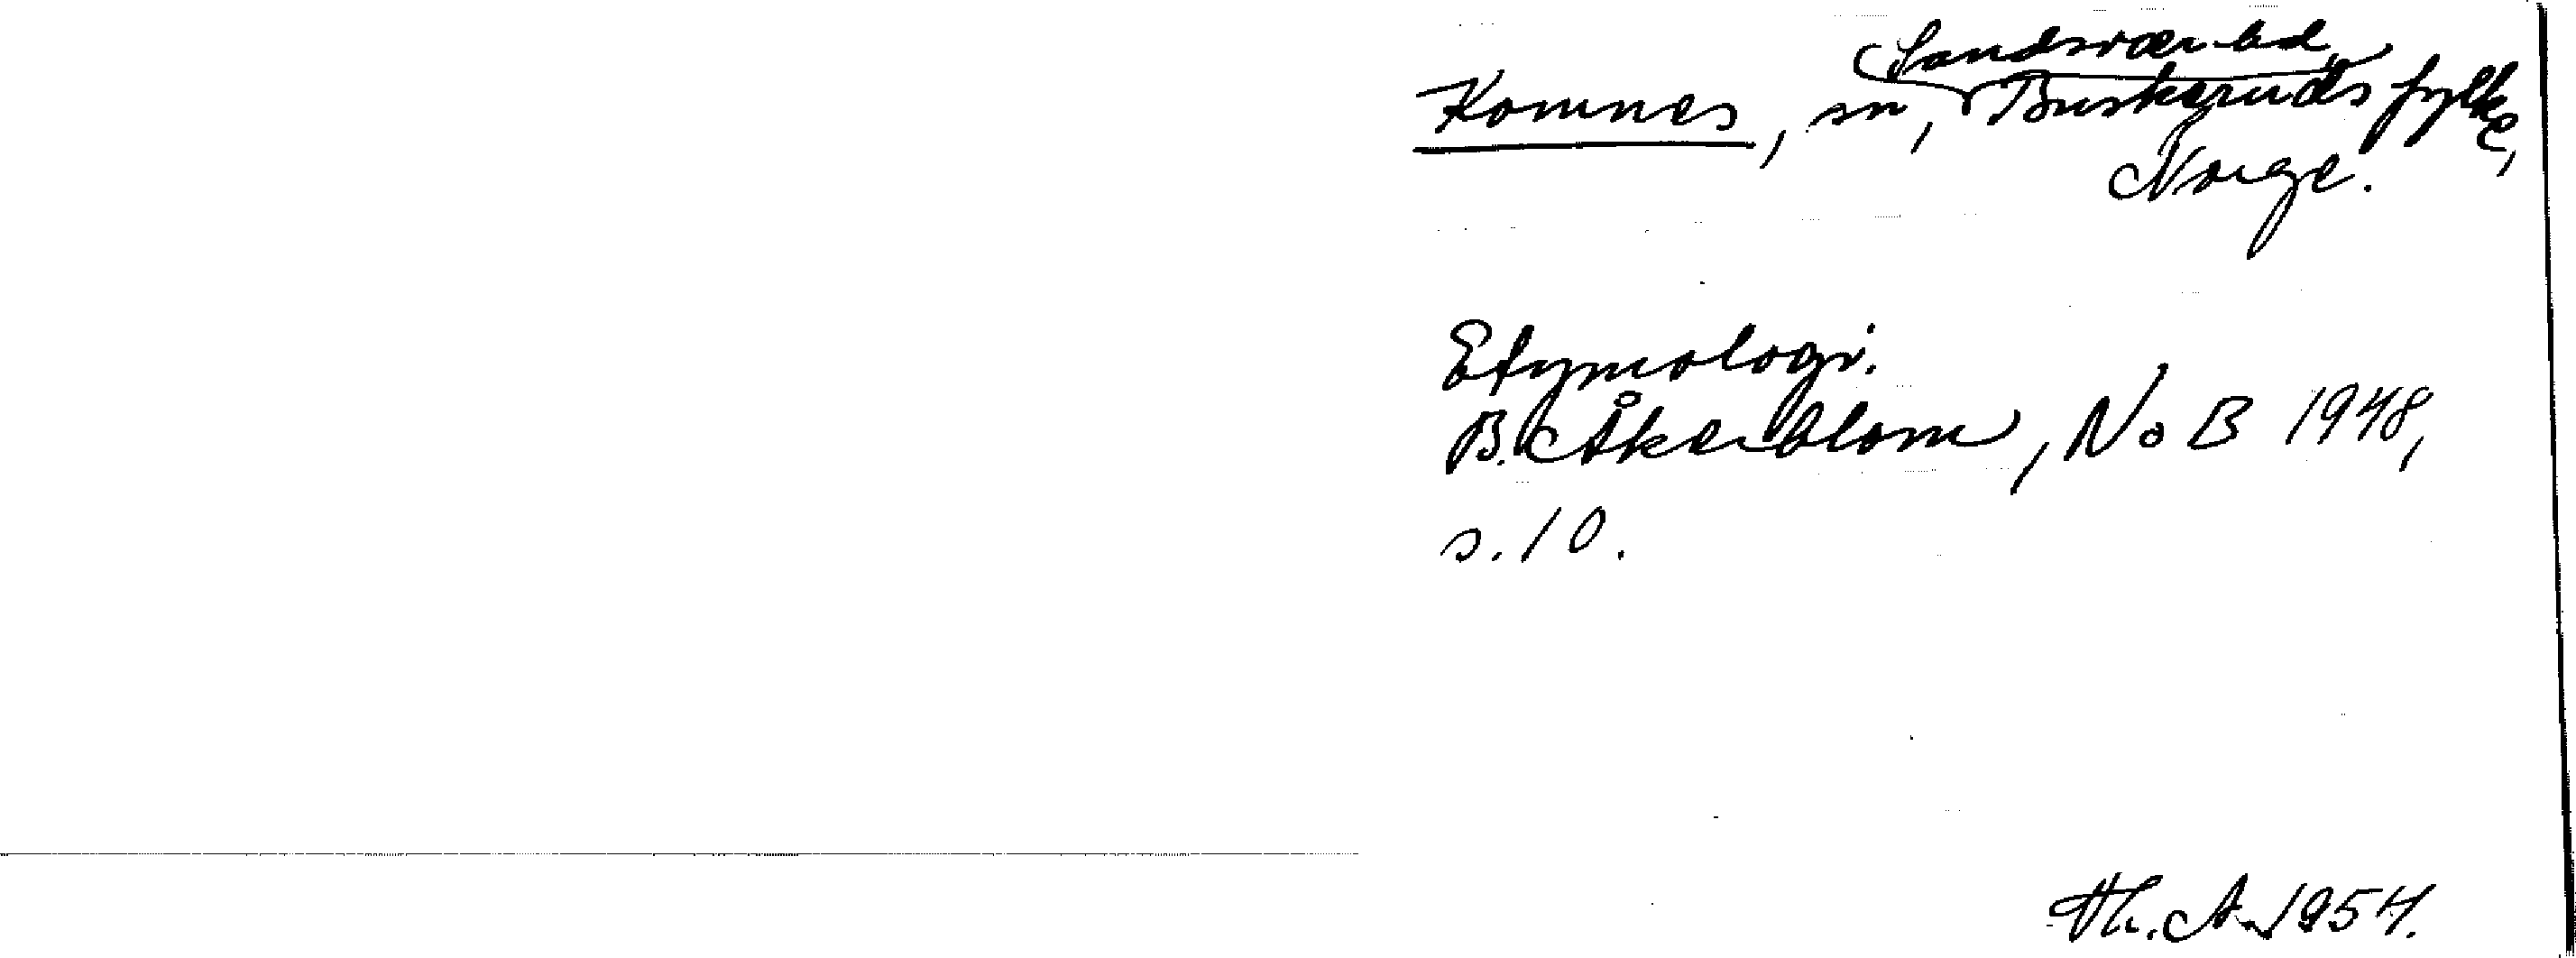 Komnes, sn, Sandsvær hd, Buskeruds fylke,
Norge.
Etymologi.
B. Åkerblom, NoB 1948,
s. 10.
Th. A. 1954.